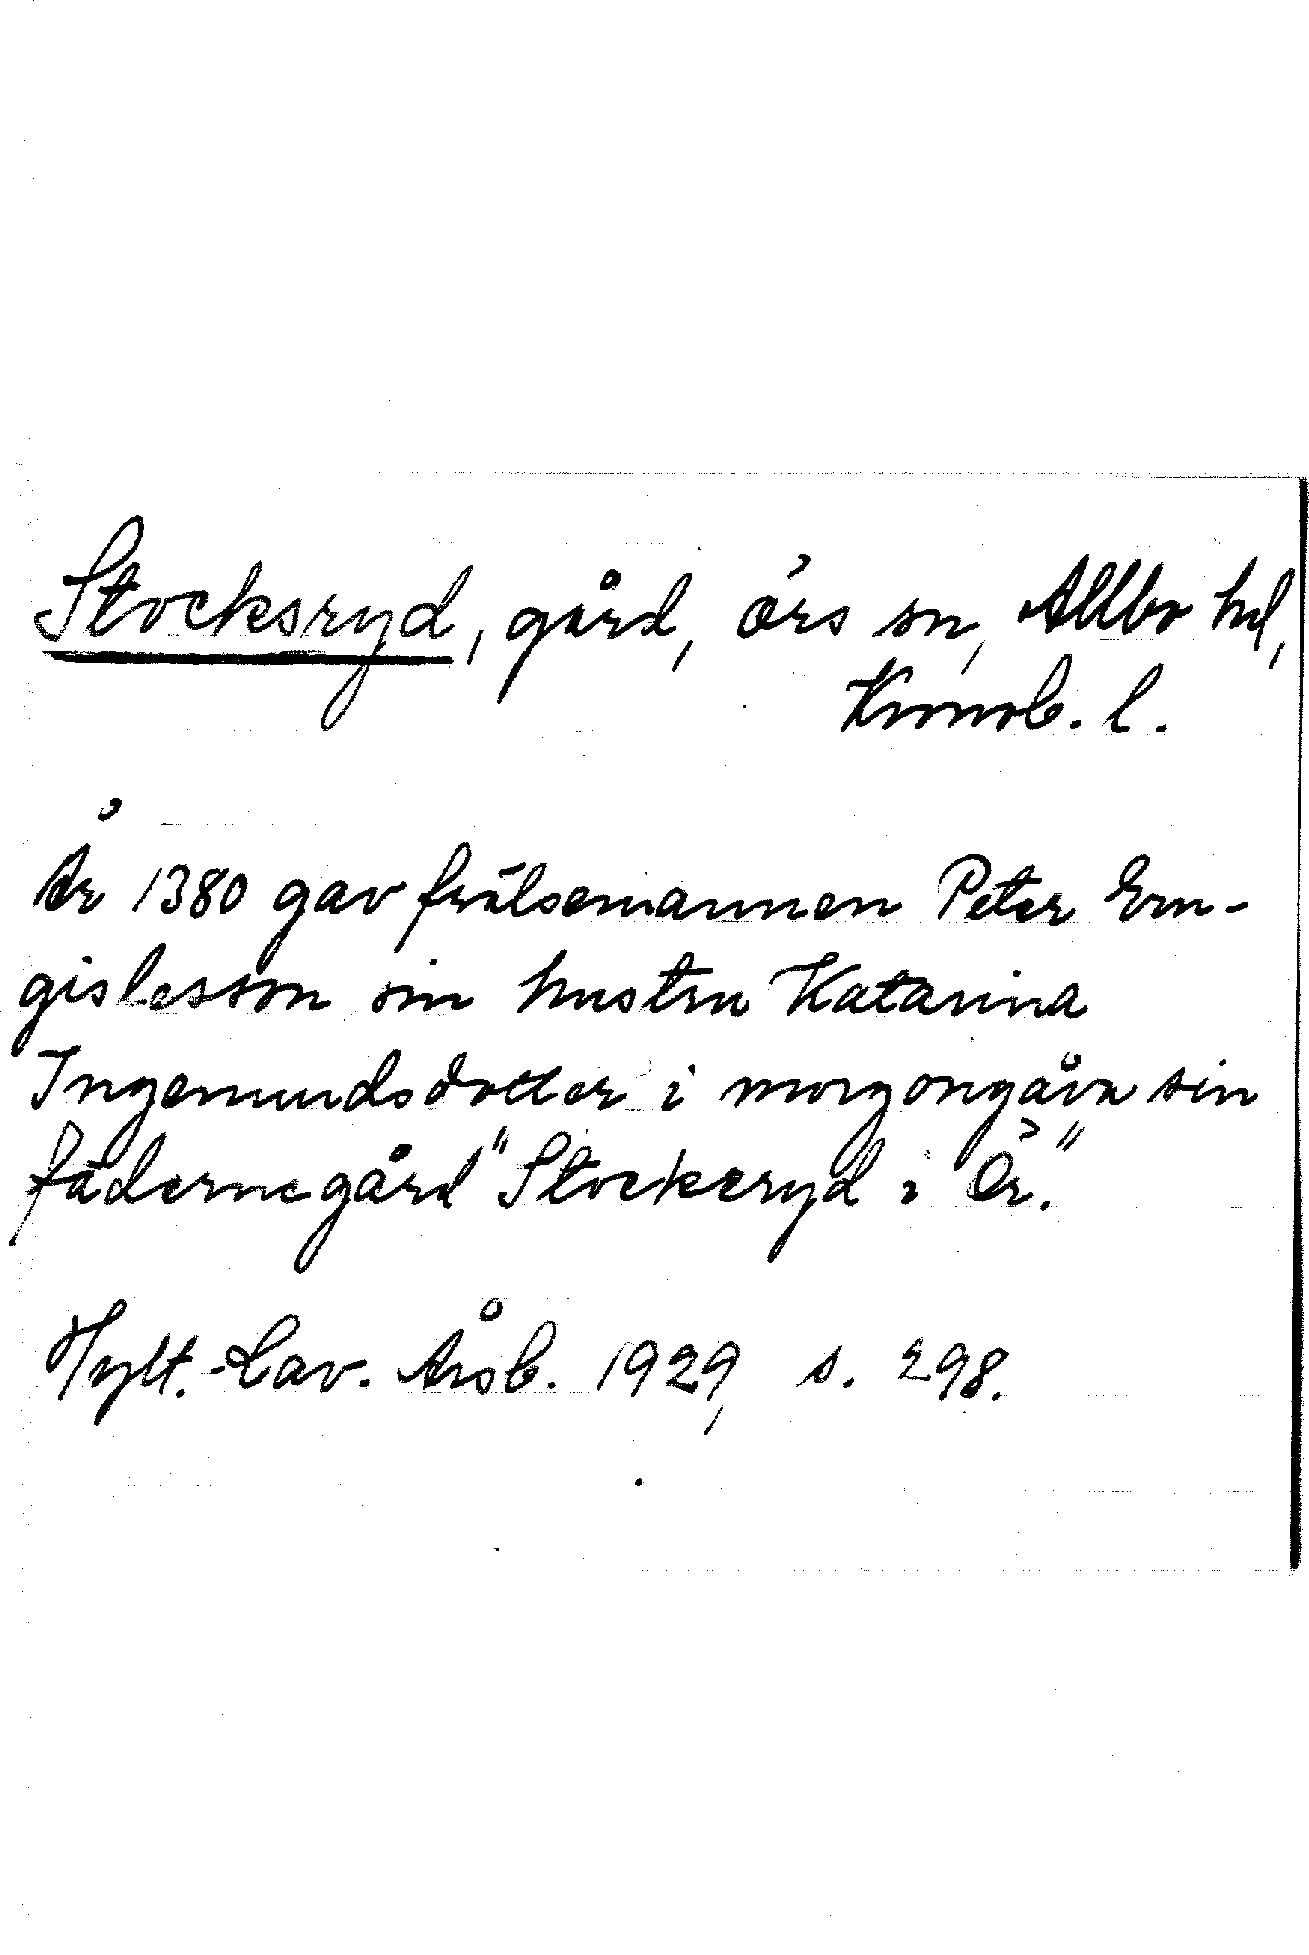 Stocksryd, gård, Örs sn, Allbo hd,
Kronob. l.
År 1380 gav frälsemannen Peter Ern-
gislesson sin hustru Katarina
Ingemundsdotter i morgongåva sin
fädernegård "Stockeryd i Ör."
Hylt.-Cav. Årsb. 1929, s. 298.